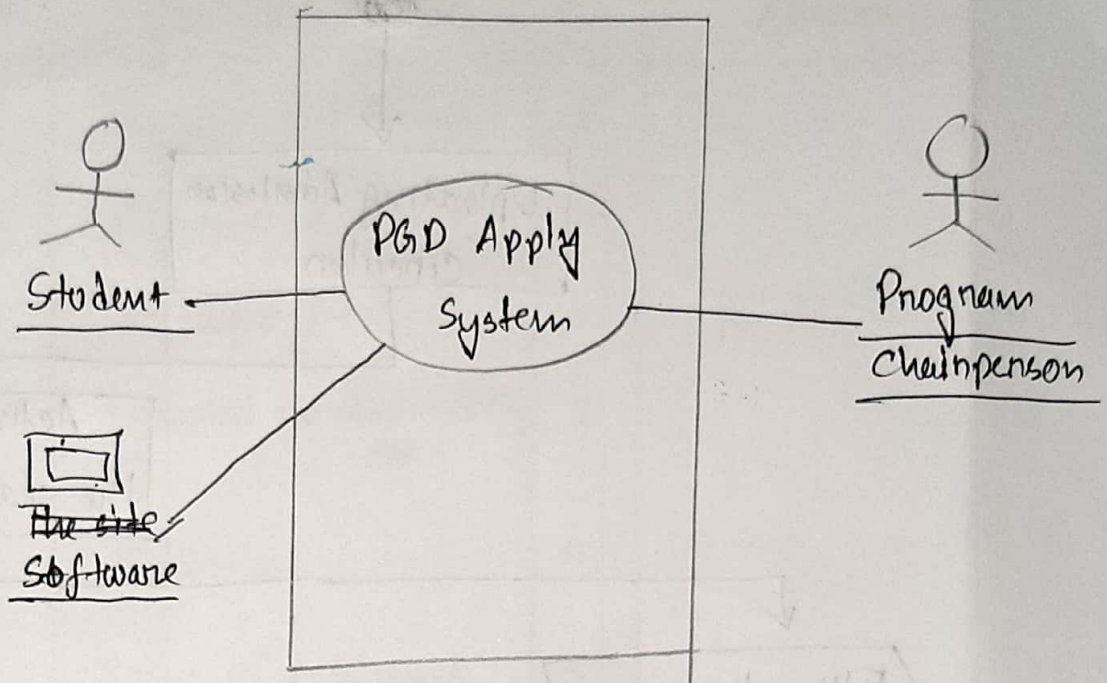 Student
PGD Apply
System
Program
Chairperson
The side
Software